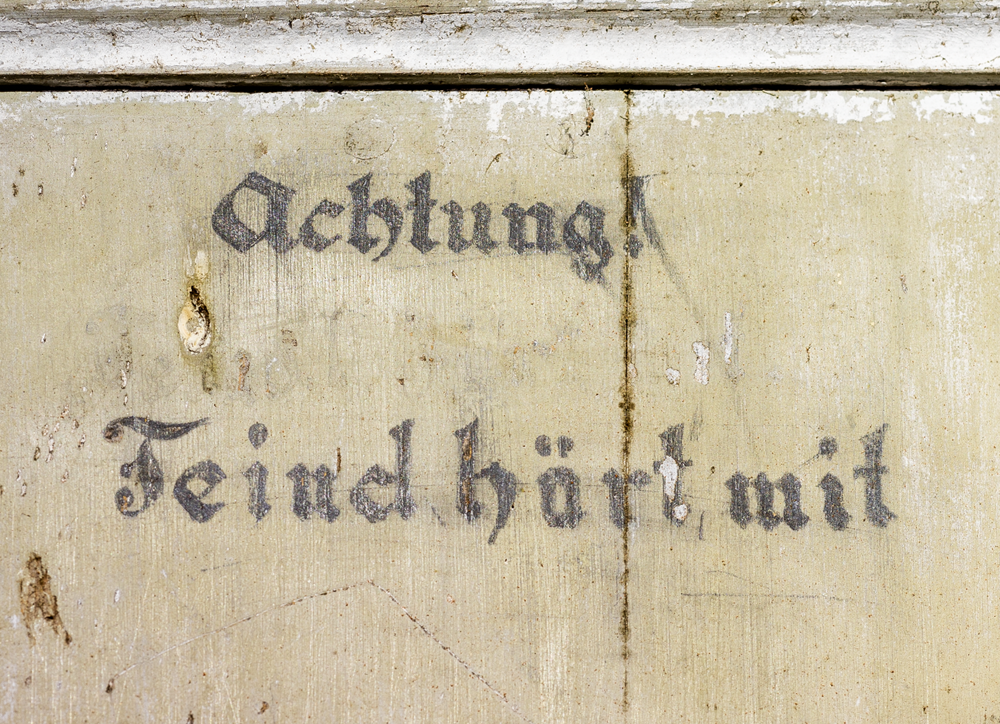 Achtung!
Feind hört mit